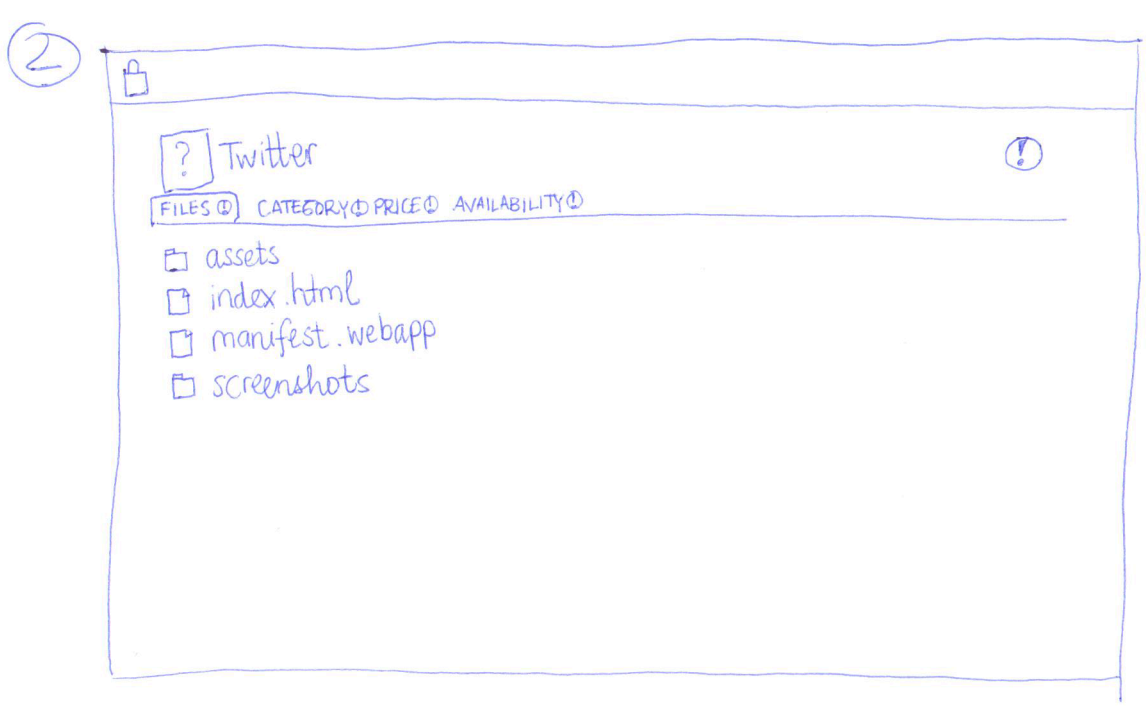 2
? Twitter !
FILES ! CATEGORY ! PRICE ! AVAILABILITY !
assets
index.html
manifest.webapp
screenshots